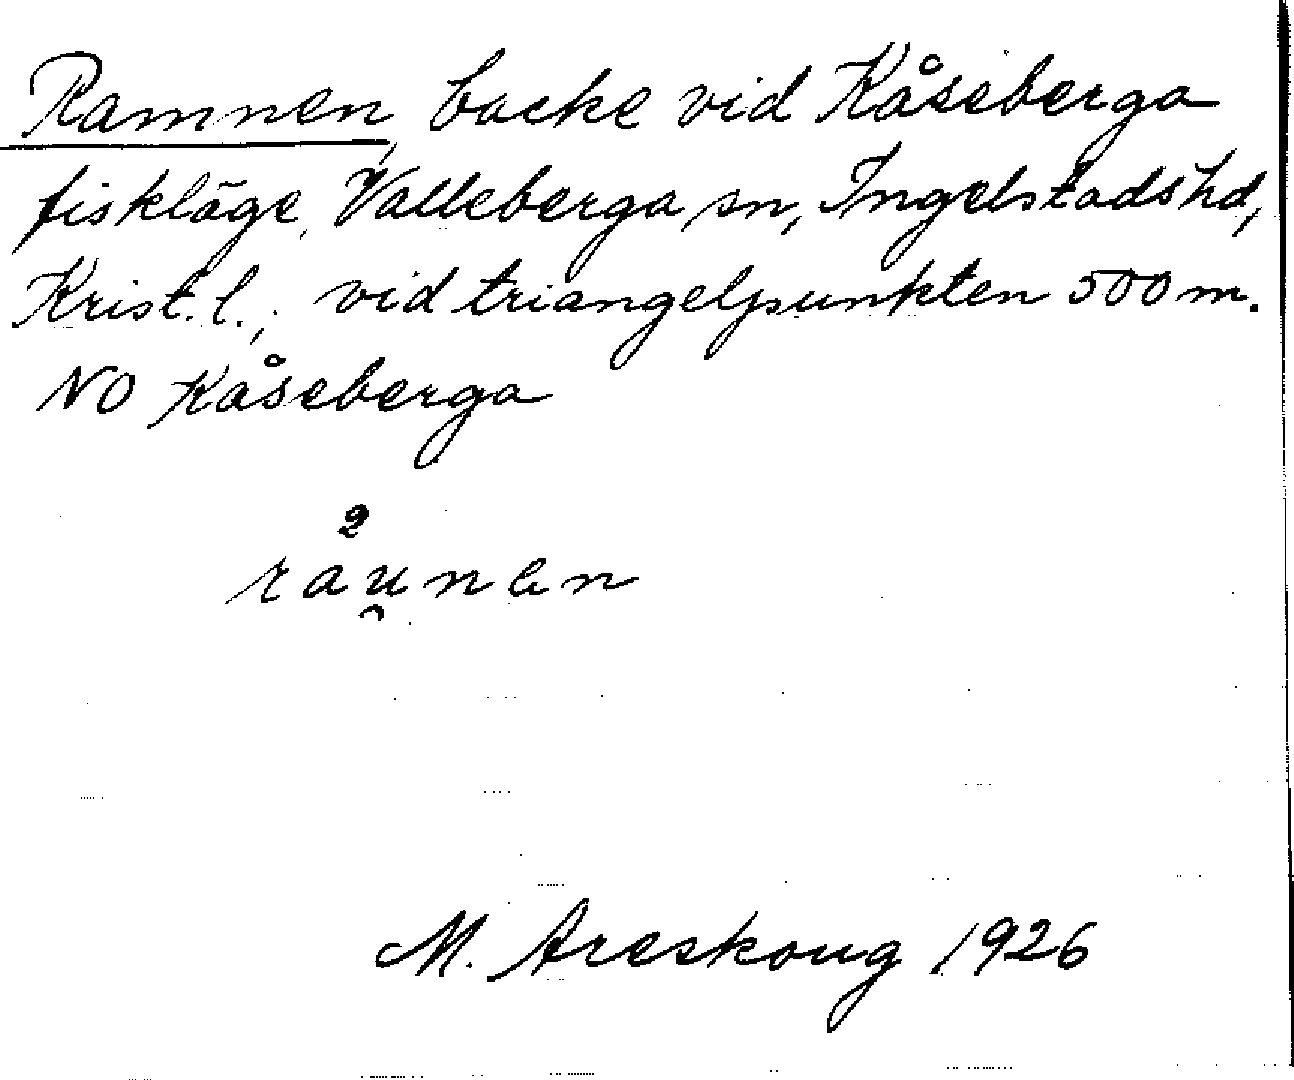 Ramnen, backe vid Kåseberga
fiskläge, Valleberga sn, Ingelstads hd,
Krist. l.; vid triangelpunkten 500 m.
NO Kåseberga
2
råu̯nen
M. Areskoug 1926